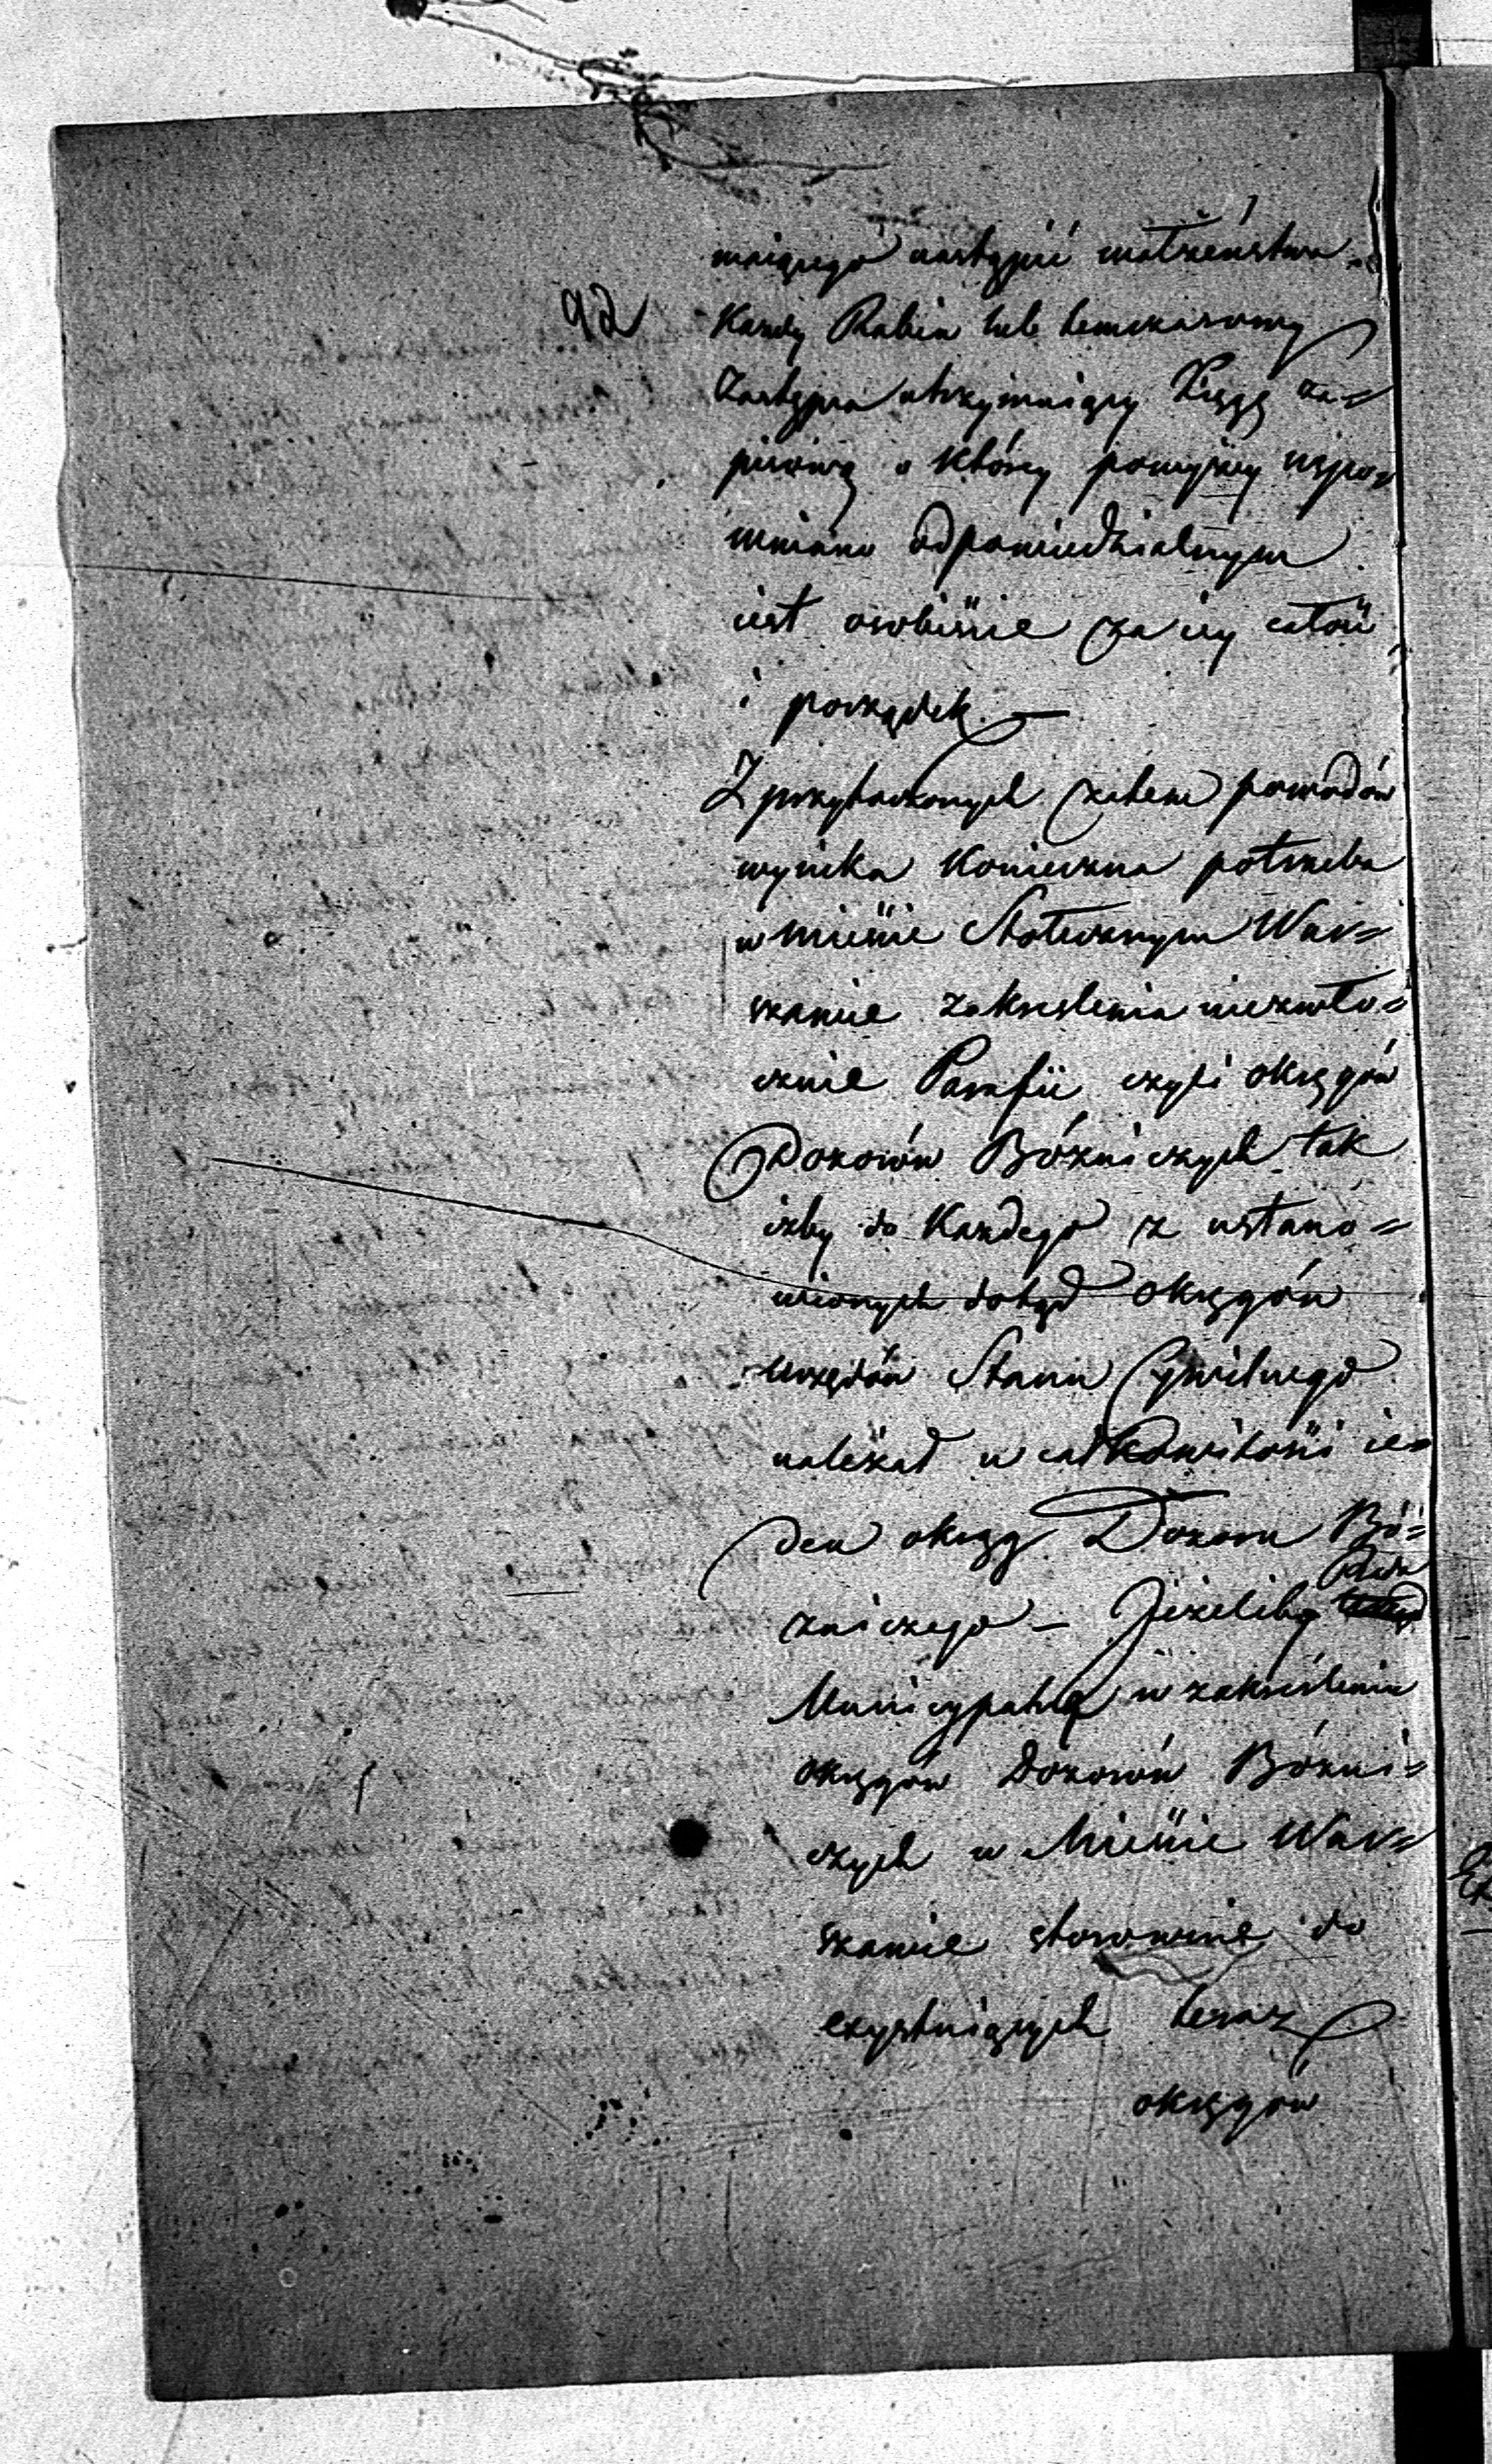 maiącego nastąpić małżeństwa.
9 2) Każdy Rabin lub tymczasowy
Zastępca utrzymuiący Xięgę za=
pisową o którey powyżey wspo=
mniano odpowiedzialnym
iest osobiście za iey całość
i porządek. —
Z przytoczonych zatem powodów
wynika konieczna potrzeba
w mieście Stołecznym War=
szawie zakreślenia niezwło=
cznie Parafii czyli okręgów
Dozorów Bóźniczych tak
iżby do każdego z ustano=
wionych dotąd okręgów
urzędów Stanu Cywilnego
należał w całkowitości ie=
den okręg Dozoru Bó=
żniczego — Jeżeliby
Municypalny w zakreśleniu
okręgów Dozorów Bóżni=
czych w Mieście War=
szawie stosownie do
exystuiących teraz
okręgów